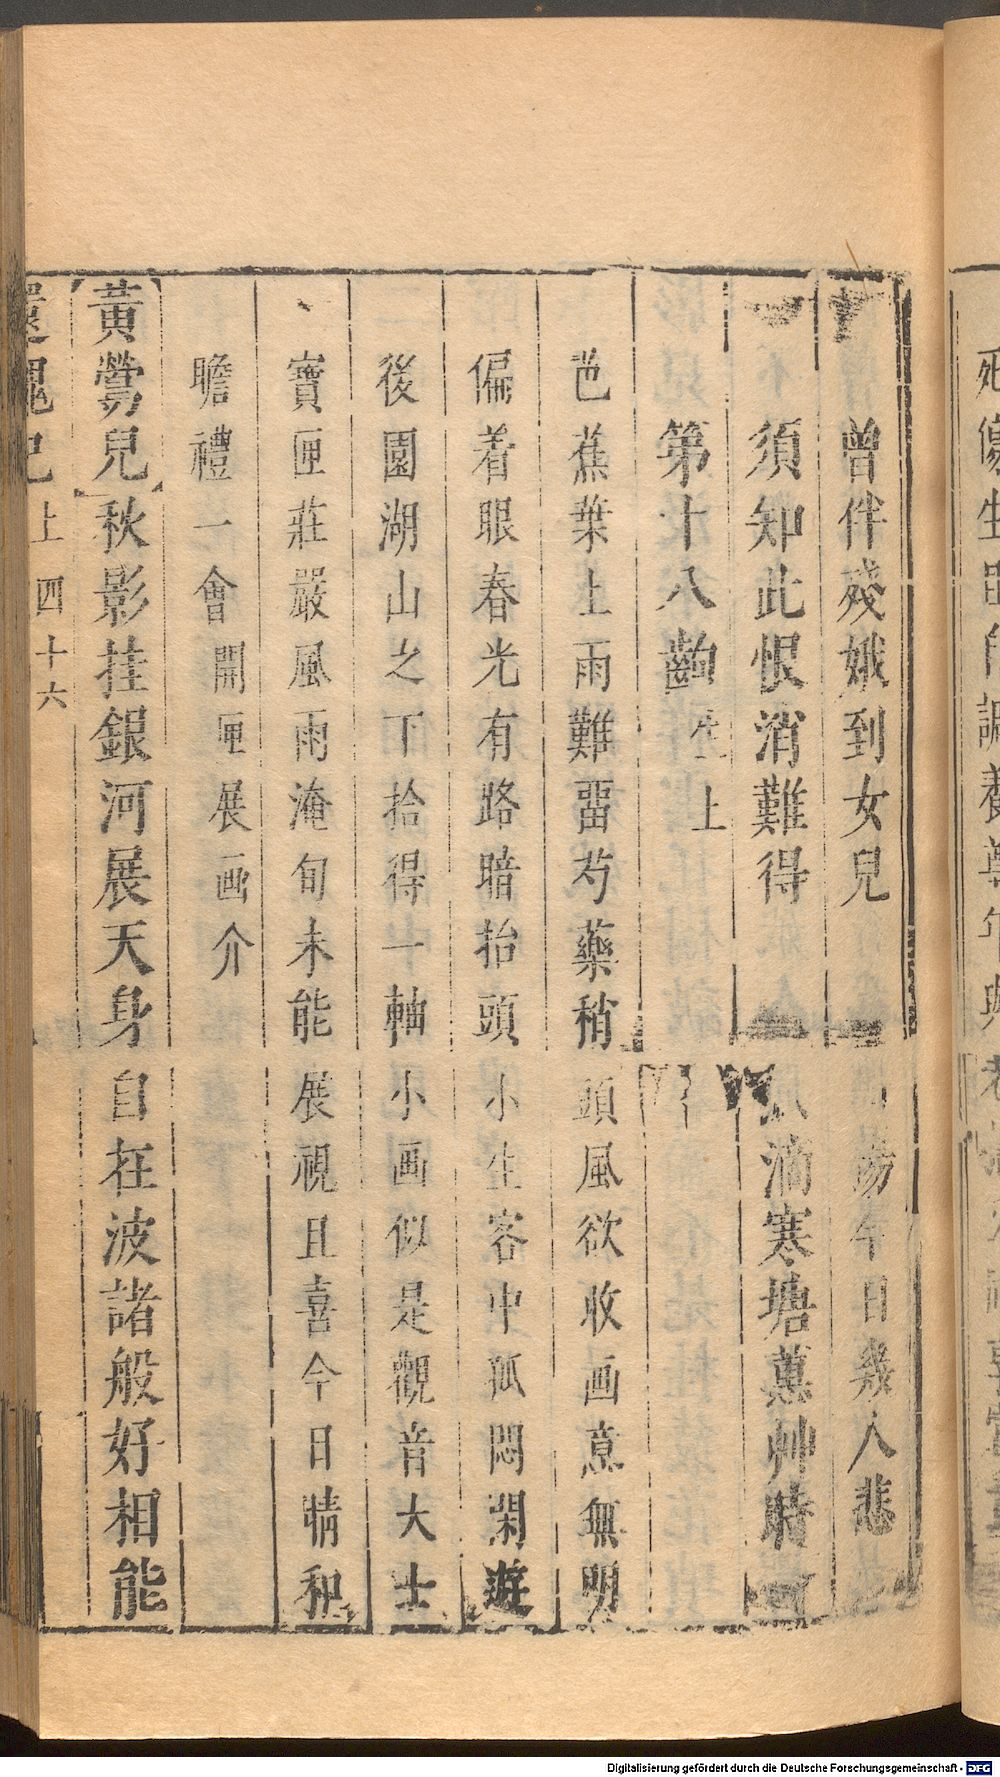 曾伴殘娥到女兒 陽午日幾人悲
須知此恨消難得 滴寒塘蕙艸時
第十八齣 生上
芭蕉葉上雨難畱芍藥稍頭風欲收画意無明
偏着眼春光有路暗抬頭小生客中孤悶閑遊
後園湖山之下拾得一軸小画似是觀音大士
寶匣莊嚴風雨淹旬未能展視且喜今日晴和
瞻禮一會開匣展画介
黃鶯兒秋影挂銀河展天身自在波諸般好相能
還魂記 上 四十六
Digitalisierung gefördert durch die Deutsche Forschungsgemeinschaft - DFG